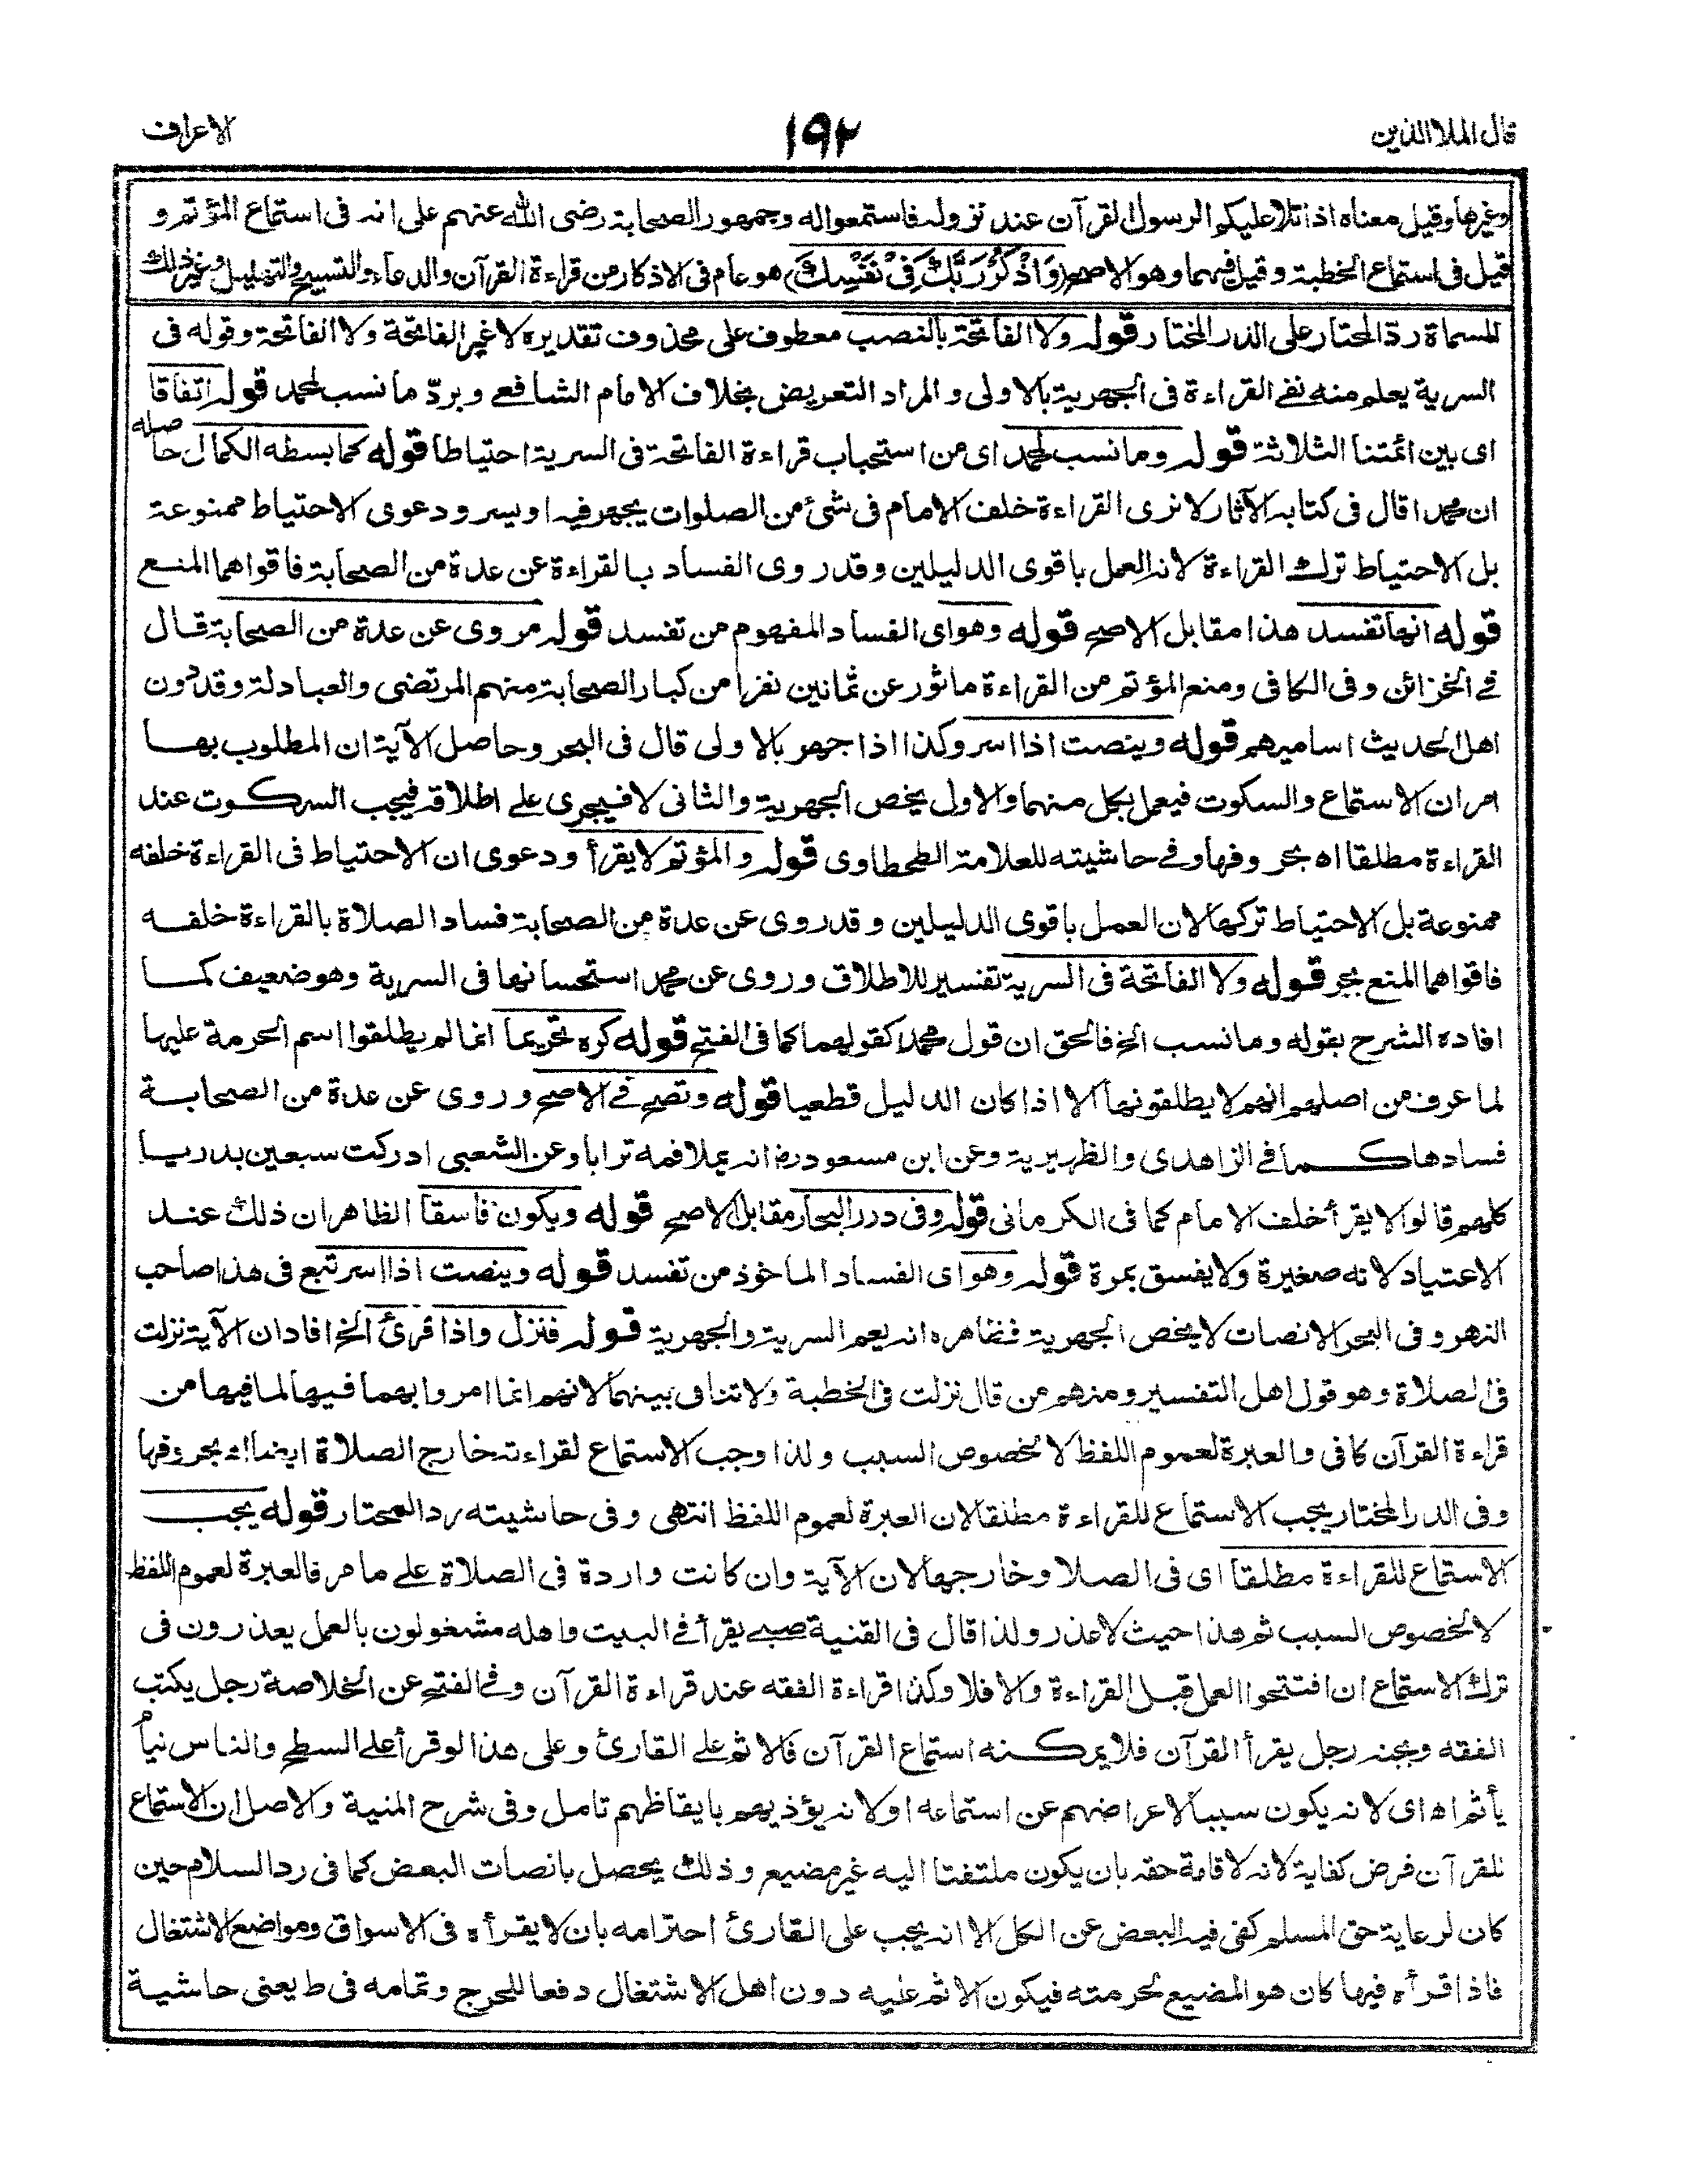 قال الملا الذين
١٩٢
الاعراف
وغيرها وقيل معناه اذا تلا عليكم الرسول القرآن عند نزوله فاستمعوا له وجمهور الصحابة رضى الله عنهم على انه فى استماع المؤتم و
قيل فى استماع الخطبة وقيل فيهما وهو الاصح (وَاذْكُرْ رَبَّكَ فِيْ نَفْسِكَ) هو عام فى الاذكار من قراءة القرآن والدعاء والتسبيح والتهليل وغير ذلك
للمسماة ردّ المحتار على الدر المختار قوله ولا الفاتحة بالنصب معطوف على محذوف تقديره لا غير الفاتحة ولا الفاتحة وقوله فى
السرية يعلم منه نفى القراءة فى الجهرية بالاولى والمراد التعريض بخلاف الامام الشافعے وبردّ ما نسب لمحمد قوله اتفاقا
اى بين ائمتنا الثلاثة قوله وما نسب لمحمد اى من استحباب قراءة الفاتحة فى السرية احتياطا قوله كما بسطه الكمال حاصله
ان محمدا قال فى كتابه الآثار لا نرى القراءة خلف الامام فى شئ من الصلوات يجهر فيه او يسر ودعوى الاحتياط ممنوعة
بل الاحتياط ترك القراءة لانه العمل باقوى الدليلين وقد روى الفساد بالقراءة عن عدة من الصحابة فاقواهما المنع
قوله انها تفسد هذا مقابل الاصح قوله وهو اى الفساد المفهوم من تفسد قوله مروى عن عدة من الصحابة قال
فے الخزائن وفى الكافى ومنع المؤتم من القراءة ماثور عن ثمانين نفرا من كبار الصحابة منهم المرتضى والعبادلة وقد دون
اهل الحديث اساميهم قوله وينصت اذا اسر وكذا اذا جهر بالاولى قال فى البحر وحاصل الآية ان المطلوب بها
امران الاستماع والسكوت فيعمل بكل منهما والاول يخص الجهرية والثانى لا فيجرى علے اطلاقه فيجب السكوت عند
القراءة مطلقا اه بحر وفها وفے حاشيته للعلامة الطحطاوى قوله والمؤتم لا يقرأ ودعوى ان الاحتياط فى القراءة خلفه
ممنوعة بل الاحتياط تركها لان العمل باقوى الدليلين وقد روى عن عدة من الصحابة فساد الصلاة بالقراءة خلفه
فاقواهما المنع بحر قوله ولا الفاتحة فى السرية تفسير للاطلاق وروى عن محمد استحسانها فى السرية وهو ضعيف كما
افاده الشرح بقوله وما نسب الخ فالحق ان قول محمد كقولهما كما فى الفتح قوله كره تحريما انما لم يطلقوا اسم الحرمة عليها
لما عرف من اصلهم انهم لا يطلقونها الا اذا كان الدليل قطعيا قوله وتصح فے الاصح وروى عن عدة من الصحابة
فسادها كما فے الزاهدى والظهيرية وعن ابن مسعود رضـ انه يملا فمه ترابا وعن الشعبى ادركت سبعين بدريا
كلهم قالوا لا يقرأ خلف الامام كما فى الكرمانى قوله وفى درر البحار مقابل الاصح قوله ويكون فاسقا الظاهر ان ذلك عند
الاعتياد لانه صغيرة ولا يفسق بمرة قوله وهو اى الفساد الماخوذ من تفسد قوله وينصت اذا اسر تبع فى هذا صاحب
النهر وفى البحر الانصات لا يخص الجهرية فظاهره انه يعم السرية والجهرية قوله فنزل واذا قرئ الخ افاد ان الآية نزلت
فى الصلاة وهو قول اهل التفسير ومنهم من قال نزلت فى الخطبة ولا تنافى بينهما لانهم انما امروا بهما فيها لما فيها من
قراءة القرآن كافى والعبرة لعموم اللفظ لا لخصوص السبب ولذا وجب الاستماع لقراءته خارج الصلاة ايضا اه بحروفها
وفى الدر المختار يجب الاستماع للقراءة مطلقا لان العبرة لعموم اللفظ انتهى وفى حاشيته رد المحتار قوله يجب
الاستماع للقراءة مطلقا اى فى الصلا وخارجها لان الآية وان كانت واردة فى الصلاة علے ما مر فالعبرة لعموم اللفظ
لا لخصوص السبب ثم هذا حيث لا عذر ولذا قال فى القنية صبے يقرأ فے البيت واهله مشغولون بالعمل يعذرون فى
ترك الاستماع ان افتتحوا العمل قبل القراءة والا فلا وكذا قراءة الفقه عند قراءة القرآن وفے الفتح عن الخلاصة رجل يكتب
الفقه وبجنبه رجل يقرأ القرآن فلا يمكنه استماع القرآن فالاثم علے القارئ وعلى هذا لو قرأ علے السطح والناس نيام
يأثم اه اى لانه يكون سببا لاعراضهم عن استماعه او لانه يؤذيهم بايقاظهم تامل وفى شرح المنية والاصل ان الاستماع
للقرآن فرض كفاية لانه لاقامة حقه بان يكون ملتفتا اليه غير مضيع وذلك يحصل بانصات البعض كما فى رد السلام حين
كان لرعاية حق المسلم كفى فيه البعض عن الكل الا انه يجب على القارئ احترامه بان لا يقرأه فى الاسواق ومواضع الاشتغال
فاذا قرأه فيها كان هو المضيع لحرمته فيكون الاثم عليه دون اهل الاشتغال دفعا للحرج وتمامه فى ط يعنى حاشية